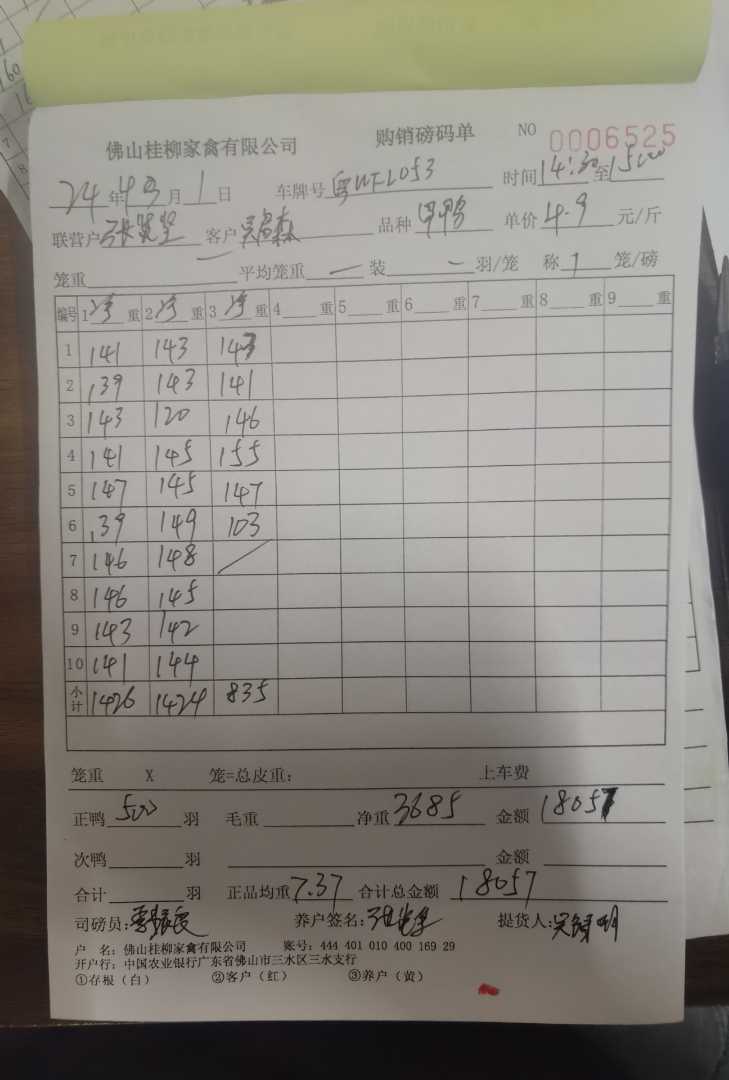 佛山桂柳家禽有限公司 购销磅码单 NO 0006525
24年 月1日 车牌号粤WFL053 时间14:30至15:00
联营户 客户 品种甲鸭 单价4.9元/斤
笼重 平均笼重一装一羽/笼 称1笼/磅
编号 1净重 2净重 3净重 4重 5重 6重 7重 8重 9重
1 141 143 143
2 139 143 141
3 143 120 146
4 141 145 155
5 147 145 147
6 139 149 103
7 146 148 /
8 146 145
9 143 142
10 141 144
小计 1426 1424 835
笼重 X 笼=总皮重: 上车费
正鸭500羽 毛重 净重3685 金额18057
次鸭 羽 金额
合计 羽 正品均重7.37 合计总金额18057
司磅员: 养户签名: 提货人:
户 名: 佛山桂柳家禽有限公司 账号: 444 401 010 400 169 29
开户行: 中国农业银行广东省佛山市三水区三水支行
①存根(白) ②客户(红) ③养户(黄)